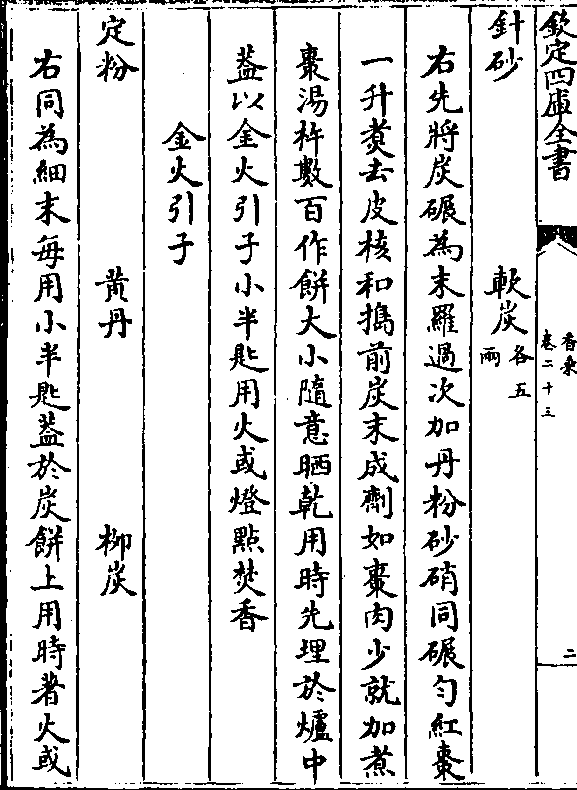 欽定四庫全書
香乘
卷二十三
二
針砂　軟炭各五兩
右先將炭碾為末羅過次加丹粉砂硝同碾勻紅棗
一升煑去皮核和擣前炭末成劑如棗肉少就加煮
棗湯杵數百作餅大小隨意晒乾用時先埋於爐中
葢以金火引子小半匙用火或燈點焚香
金火引子
定粉　黄丹　柳炭
右同為細末每用小半匙葢於炭餅上用時著火或